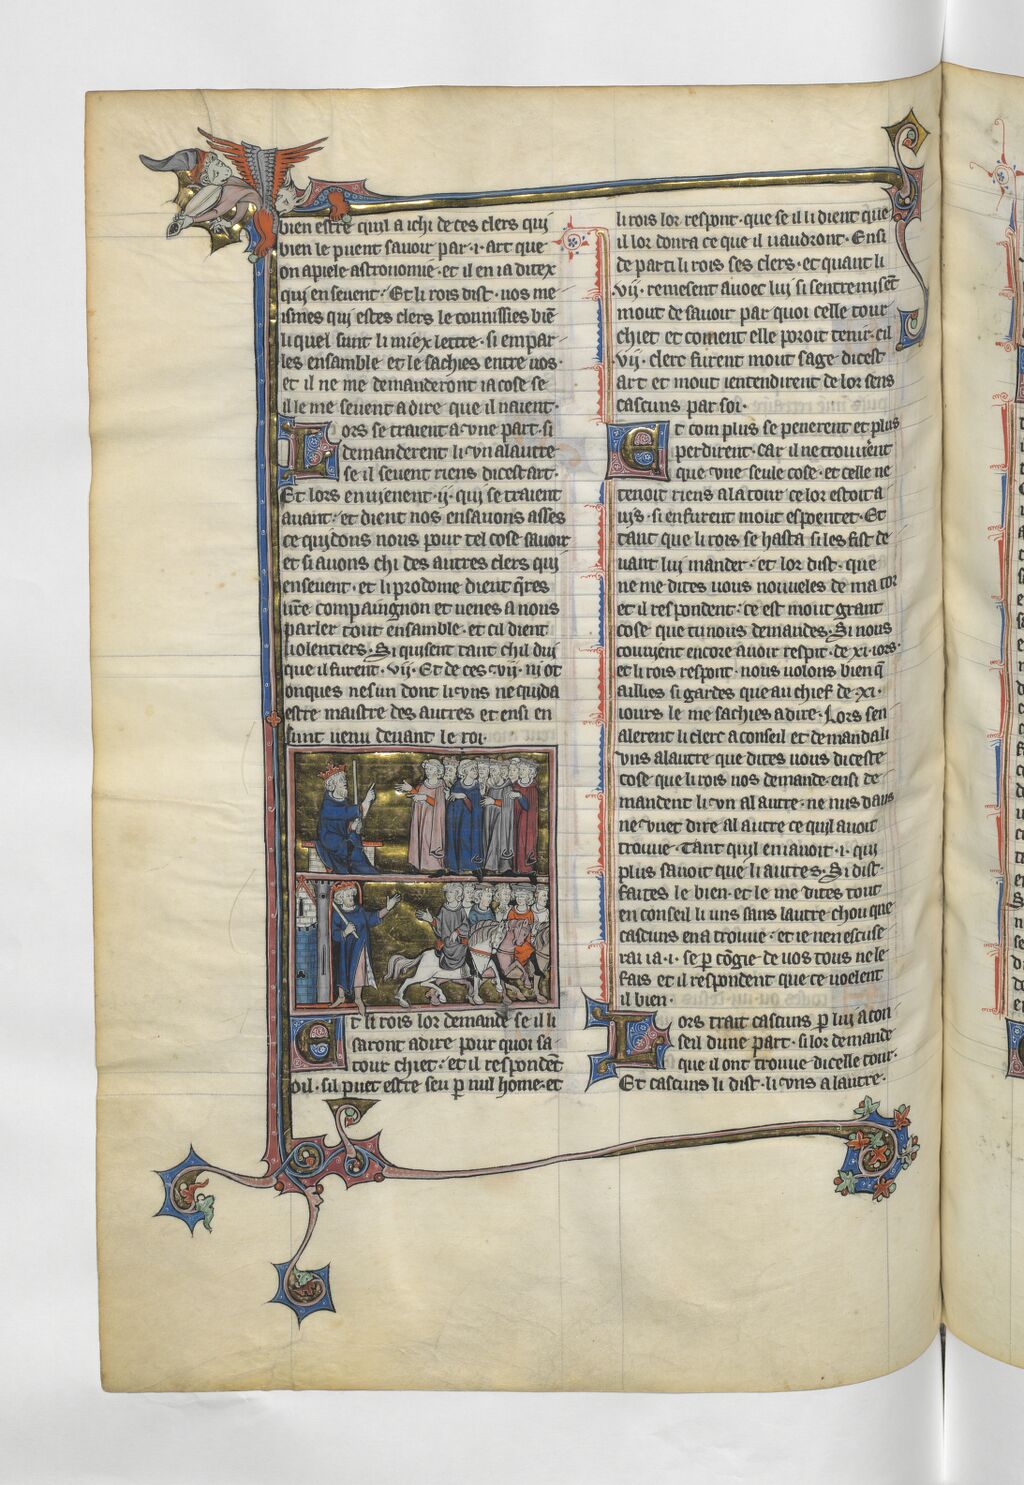 bien estre quil a ichi de ces clers qui
bien le puent sauoir par .i. art que
on apiele astronomie. et il en ia ditex
qui en seuent. Et li rois dist. uos me
ismes qui estes clers le connissies biē
li quel sunt li miex lettre. si empar
les ensamble et le sachies entre uos.
et il ne me demanderont ia cose se
il le me seuent a dire que il naient.
Lors se traient a vne part. si
demanderent li vn al autre
se il seuent riens dicest art.
Et lors en uienent .ij. qui se traient
auant. et dient nos en sauons asses
ce quidons nous pour tel cose sauoir
et si auons chi des autres clers qui
en seuent. et li prodome dient q̄res
ur̄e compaingnon et uenes a nous
parler tout ensamble. et cil dient
uolentiers. Si quisent tant chil dui
que il furent .vij. Et de ces .vij. ni ot
onques nesun dont li vns ne quida
estre maistre des autres et ensi en
sunt uenu deuant le roi.
Et li rois lor demande se il li
saront a dire pour quoi sa
tour chiet. et il respondēt
oil. sil puet estre seu p nul home. et
li rois lor respont. que se il li dient que
il lor donra ce que il uaudront. Ensi
departi li rois ses clers. et quant li
.vij. remesent auoec lui si sentremisēt
mout de sauoir par quoi celle tour
chiet et coment elle poroit tenir. cil
.vij. clerc furent mout sage dicest
art et mout i entendirent de lor sens
cascuns par soi.
Et com plus se penerent et plus
perdirent. car il ne trouuerent
que vne seule cose. et celle ne
tenoit riens a la tour ce lor estoit a
uis. si en furent mout espoentet. Et
tant que li rois se hasta si les fist de
uant lui mander. et lor dist. que
ne me dites uous nouueles de ma tor
et il respondent. ce est mout grant
cose que tu nous demandes. Si nous
couuient encore auoir respit. de .xi. iors.
et li rois respont. nous uolons bien q̄
aillies si gardes que au chief de .xi.
iours le me sachies a dire. Lors sen
alerent li clerc a conseil et demanda li
vns al autre que dites uous diceste
cose que li rois nos demande. ensi de
mandent li vn al autre. ne nus dans
ne vuet dire al autre ce quil auoit
trouue. Tant quil en i auoit .i. qui
plus sauoit que li autres. Si dist.
faites le bien. et le me dites tout
en conseil li uns sans lautre chou que
cascuns en a trouue. et ie nen escuse
rai ia .i. se p cōgie de uos tous ne le
fais et il respondent que ce uoelent
il bien.
Lors trait cascuns p lui a con
seil dune part. si lor demande
que il ont trouue dicelle tour.
Et cascuns li dist. li vns a lautre.